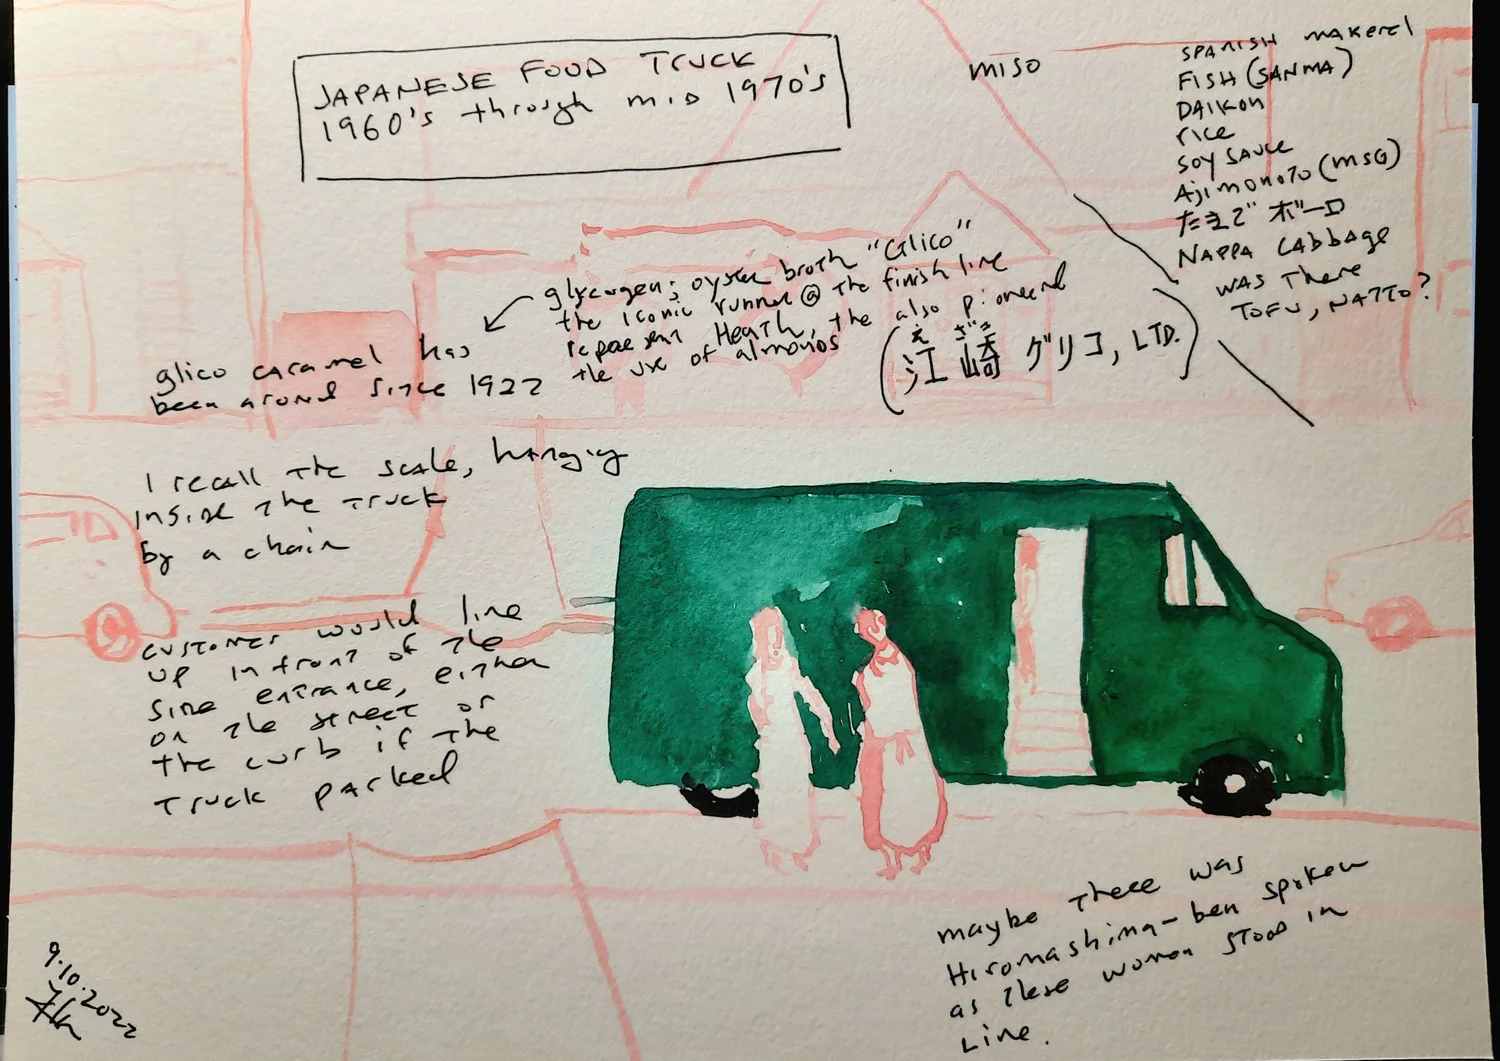 JAPANESE FOOD TRUCK
1960's through mid 1970's
miso
SPANISH MAKEREL
FISH (SANMA)
DAIKON
rice
SOY SAUCE
AJIMONOTO (MSG)
たまご ボーロ
NAPPA CABBAGE
WAS THERE
TOFU, NATTO?
glycogen; oyster broth "Glico"
the iconic runner @ the finish line
represent Heath, the also pioneered
the use of almonds
(江崎 グリコ, LTD.)
えざき
glico caramel has
been around since 1922
I recall the scale, hanging
inside the truck
by a chain
customer would line
up in front of the
side entrance, either
on the street or
the curb if the
truck parked
maybe there was
Hiromashima-ben spoken
as these women stood in
Line.
9.10.2022